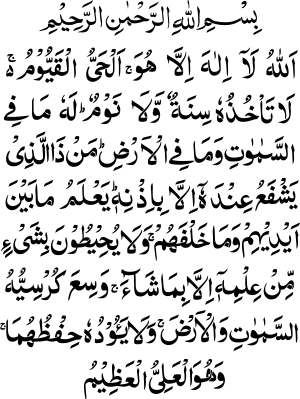 بِسْمِ اللهِ الرَّحْمٰنِ الرَّحِيْمِ
اَللهُ لَآ اِلٰهَ اِلَّا هُوَ ۚ اَلْحَىُّ الْقَيُّوْمُ ۚ
لَا تَاْخُذُهٗ سِنَةٌ وَّلَا نَوْمٌ ؕ لَهٗ مَا فِى
السَّمٰوٰتِ وَمَا فِى الْاَرْضِ ؕ مَنْ ذَا الَّذِىْ
يَشْفَعُ عِنْدَهٗۤ اِلَّا بِاِذْنِهٖ ؕ يَعْلَمُ مَا بَيْنَ
اَيْدِيْهِمْ وَمَا خَلْفَهُمْ ۚ وَلَا يُحِيْطُوْنَ بِشَىْءٍ
مِّنْ عِلْمِهٖۤ اِلَّا بِمَا شَآءَ ۚ وَسِعَ كُرْسِيُّهُ
السَّمٰوٰتِ وَالْاَرْضَ ۚ وَلَا يَئُوْدُهٗ حِفْظُهُمَا ۚ
وَهُوَ الْعَلِىُّ الْعَظِيْمُ